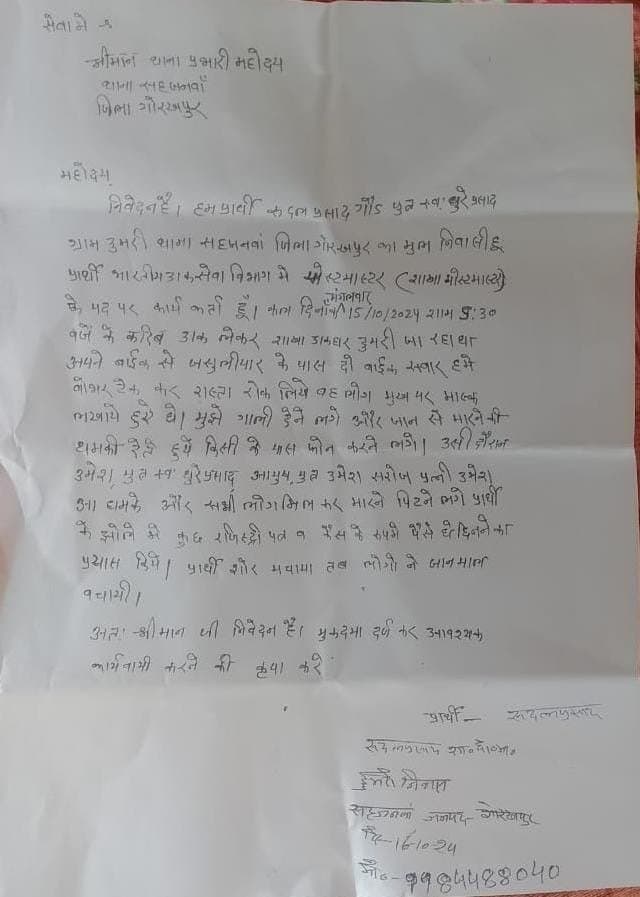 सेवा मे
श्रीमान थाना प्रभारी महोदय
थाना सहजनवाँ
जिला गोरखपुर
महोदय,
निवेदन है। हम प्रार्थी रूदल प्रसाद गौड पुत्र स्व: धुरे प्रसाद
ग्राम डुमरी थाना सहजनवां जिला गोरखपुर का मुल निवासी हू
प्रार्थी भारतीय डाक सेवा विभाग मे पोस्टमास्टर (शाखा पोस्टमास्टर)
के पद पर कार्य कर्ता हूँ। कल दिनांक मंगलवार 15/10/2024 शाम 5:30
वजें के करिब डाक लेकर शाखा डाकघर डुमरी जा रहा था
अपने बाईक से जसुलीपार के पास दो वाईक स्वार हमे
वोभर टैक कर रास्ता रोक लिये वह लोग मुख पर मास्क
लगाये हुये थे। मुझे गाली देने लगे और जान से मारने की
धमकी देते हुये किसी के पास फोन करने लगे। उसी दौरान
उमेश पुत्र स्व: धुरे प्रसाद आयुष पुत्र उमेश सरोज पत्नी उमेश
आ धमके और सभी लोग मिल कर मारने पिटने लगे प्रार्थी
के झोले मे कुछ रजिस्ट्री पत्र व कैस के रुपये पैसे थे छिनने का
प्रयास किये। प्रार्थी शोर मचाया तब लोगो ने जानमाल
वचायी।
अत: श्रीमान जी निवेदन है। मुकदमा दर्ज कर आवश्यक
कार्यवायी करने की कृपा करे
प्रार्थी - रूदल प्रसाद
रूदल प्रसाद शा.
डुमरी निवास
सहजनवां जनपद गोरखपुर
दि-16-10-24
मो०-9984488040